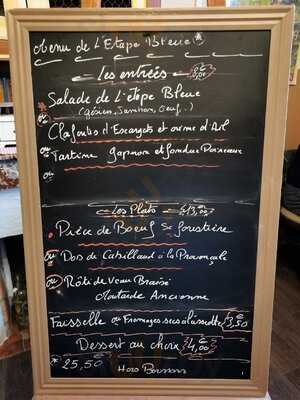 Menu de L'Etape Bleue
Les entrées 5,00€
Salade de L'Etape Bleue
(Gésier, Jambon, Oeuf,..)
ou
Clafoutis d'Escargots et crème d'Ail
ou
Tartine Saumon et fondue Poireaux
ou
Les Plats 13,00€
Pièce de Boeuf Sce forestière
ou Dos de Cabillaud à la Provençale
ou Rôti de Veau Braisé
Moutarde Ancienne
Faisselle ou Fromages secs à l'assiette 3,50€
Dessert au choix 4,00€
* 25,50€
Hors Boissons